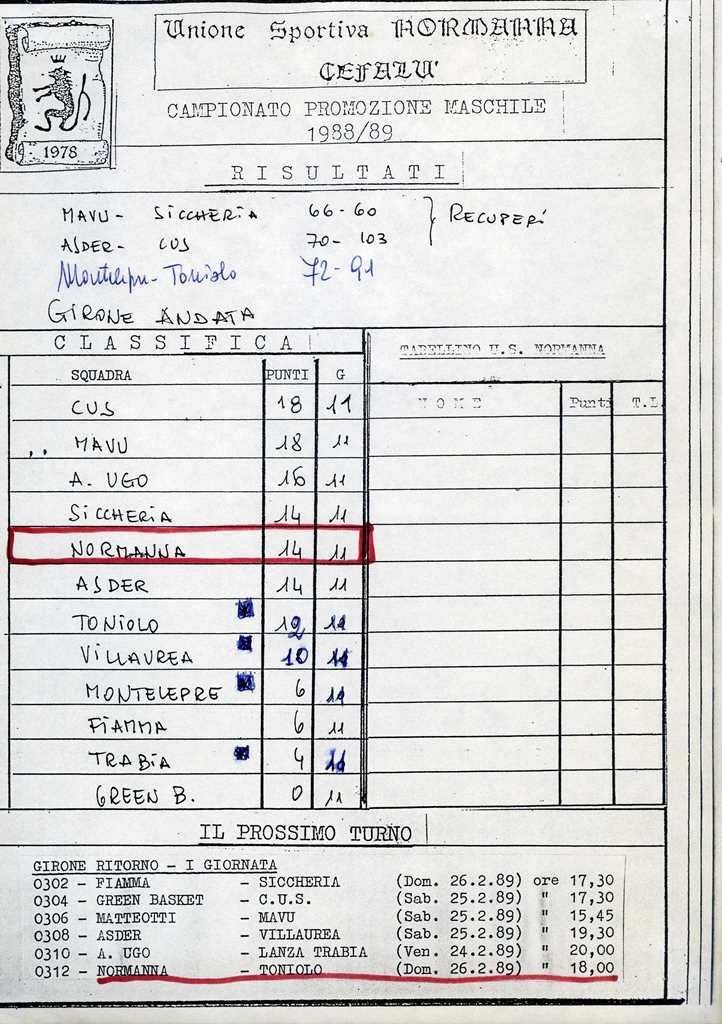 Unione Sportiva NORMANNA
CEFALU'
CAMPIONATO PROMOZIONE MASCHILE
1988/89
1978
RISULTATI
MAVU - SICCHERIA 66-60
RECUPERI
ASDER - CUS 70-103
Montelepre - Toniolo 72-91
GIRONE ANDATA
CLASSIFICA
SQUADRA PUNTI G
CUS 18 11
MAVU 18 11
A. UGO 16 11
SICCHERIA 14 11
NORMANNA 14 11
ASDER 14 11
TONIOLO 12 11
VILLAUREA 10 11
MONTELEPRE 6 11
FIAMMA 6 11
TRABIA 4 11
GREEN B. 0 11
TABELLINO U.S. NORMANNA
NOME Punti T.L.
IL PROSSIMO TURNO
GIRONE RITORNO - I GIORNATA
0302 - FIAMMA - SICCHERIA (Dom. 26.2.89) ore 17,30
0304 - GREEN BASKET - C.U.S. (Sab. 25.2.89) " 17,30
0306 - MATTEOTTI - MAVU (Sab. 25.2.89) " 15,45
0308 - ASDER - VILLAUREA (Sab. 25.2.89) " 19,30
0310 - A. UGO - LANZA TRABIA (Ven. 24.2.89) " 20,00
0312 - NORMANNA - TONIOLO (Dom. 26.2.89) " 18,00